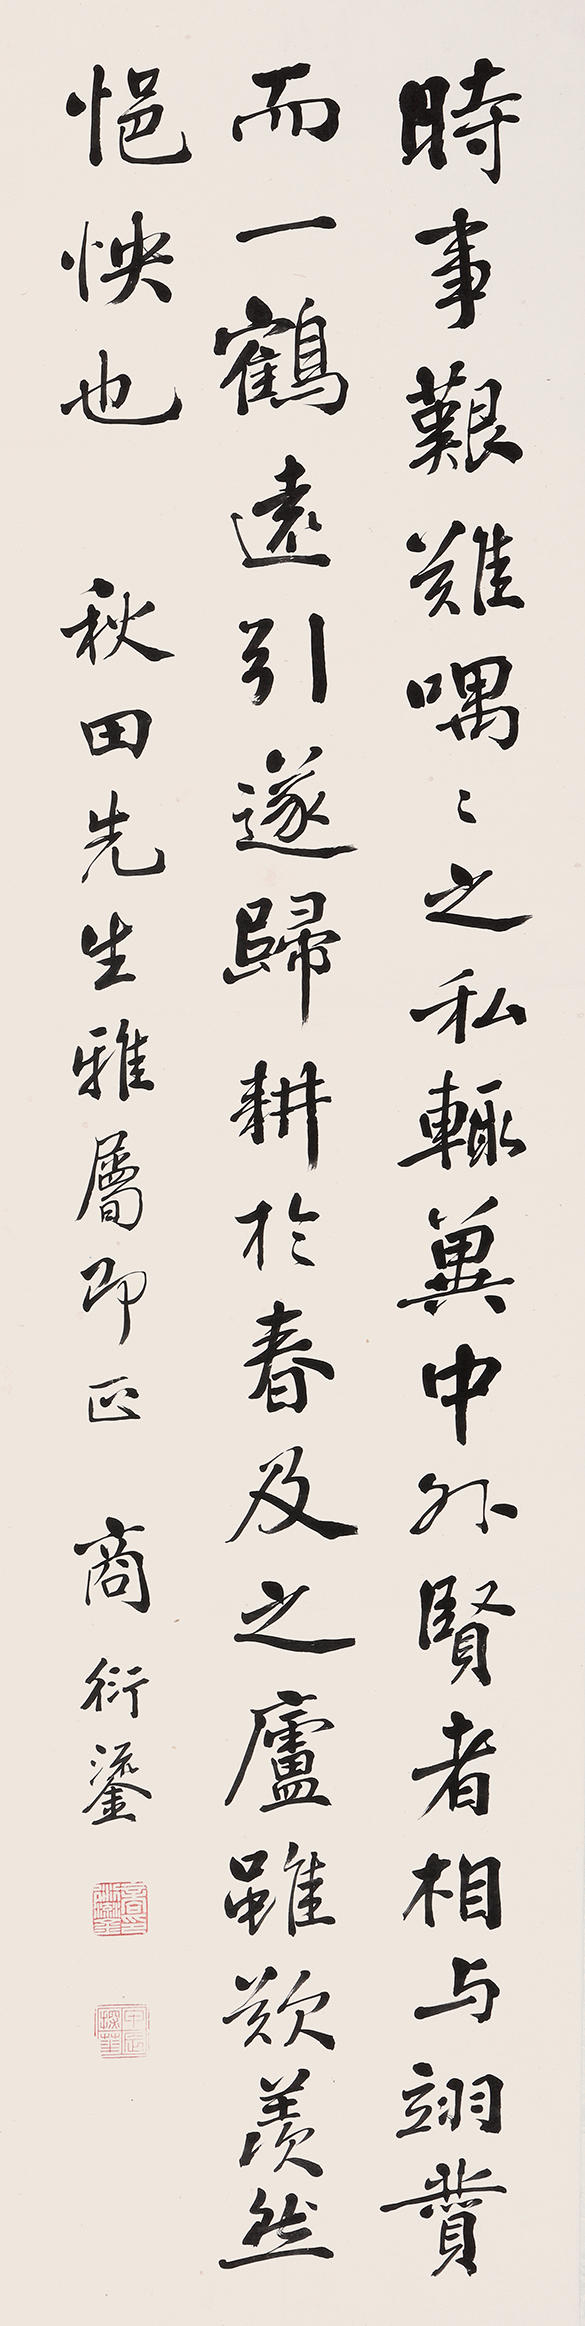 時事艱難喁〻之私輒冀中外賢者相与翊贊
而一鶴遠引遂歸耕於春及之廬雖歎羨然
悒怏也 秋田先生雅屬即正 商衍鎏
商衍鎏印
甲辰探華